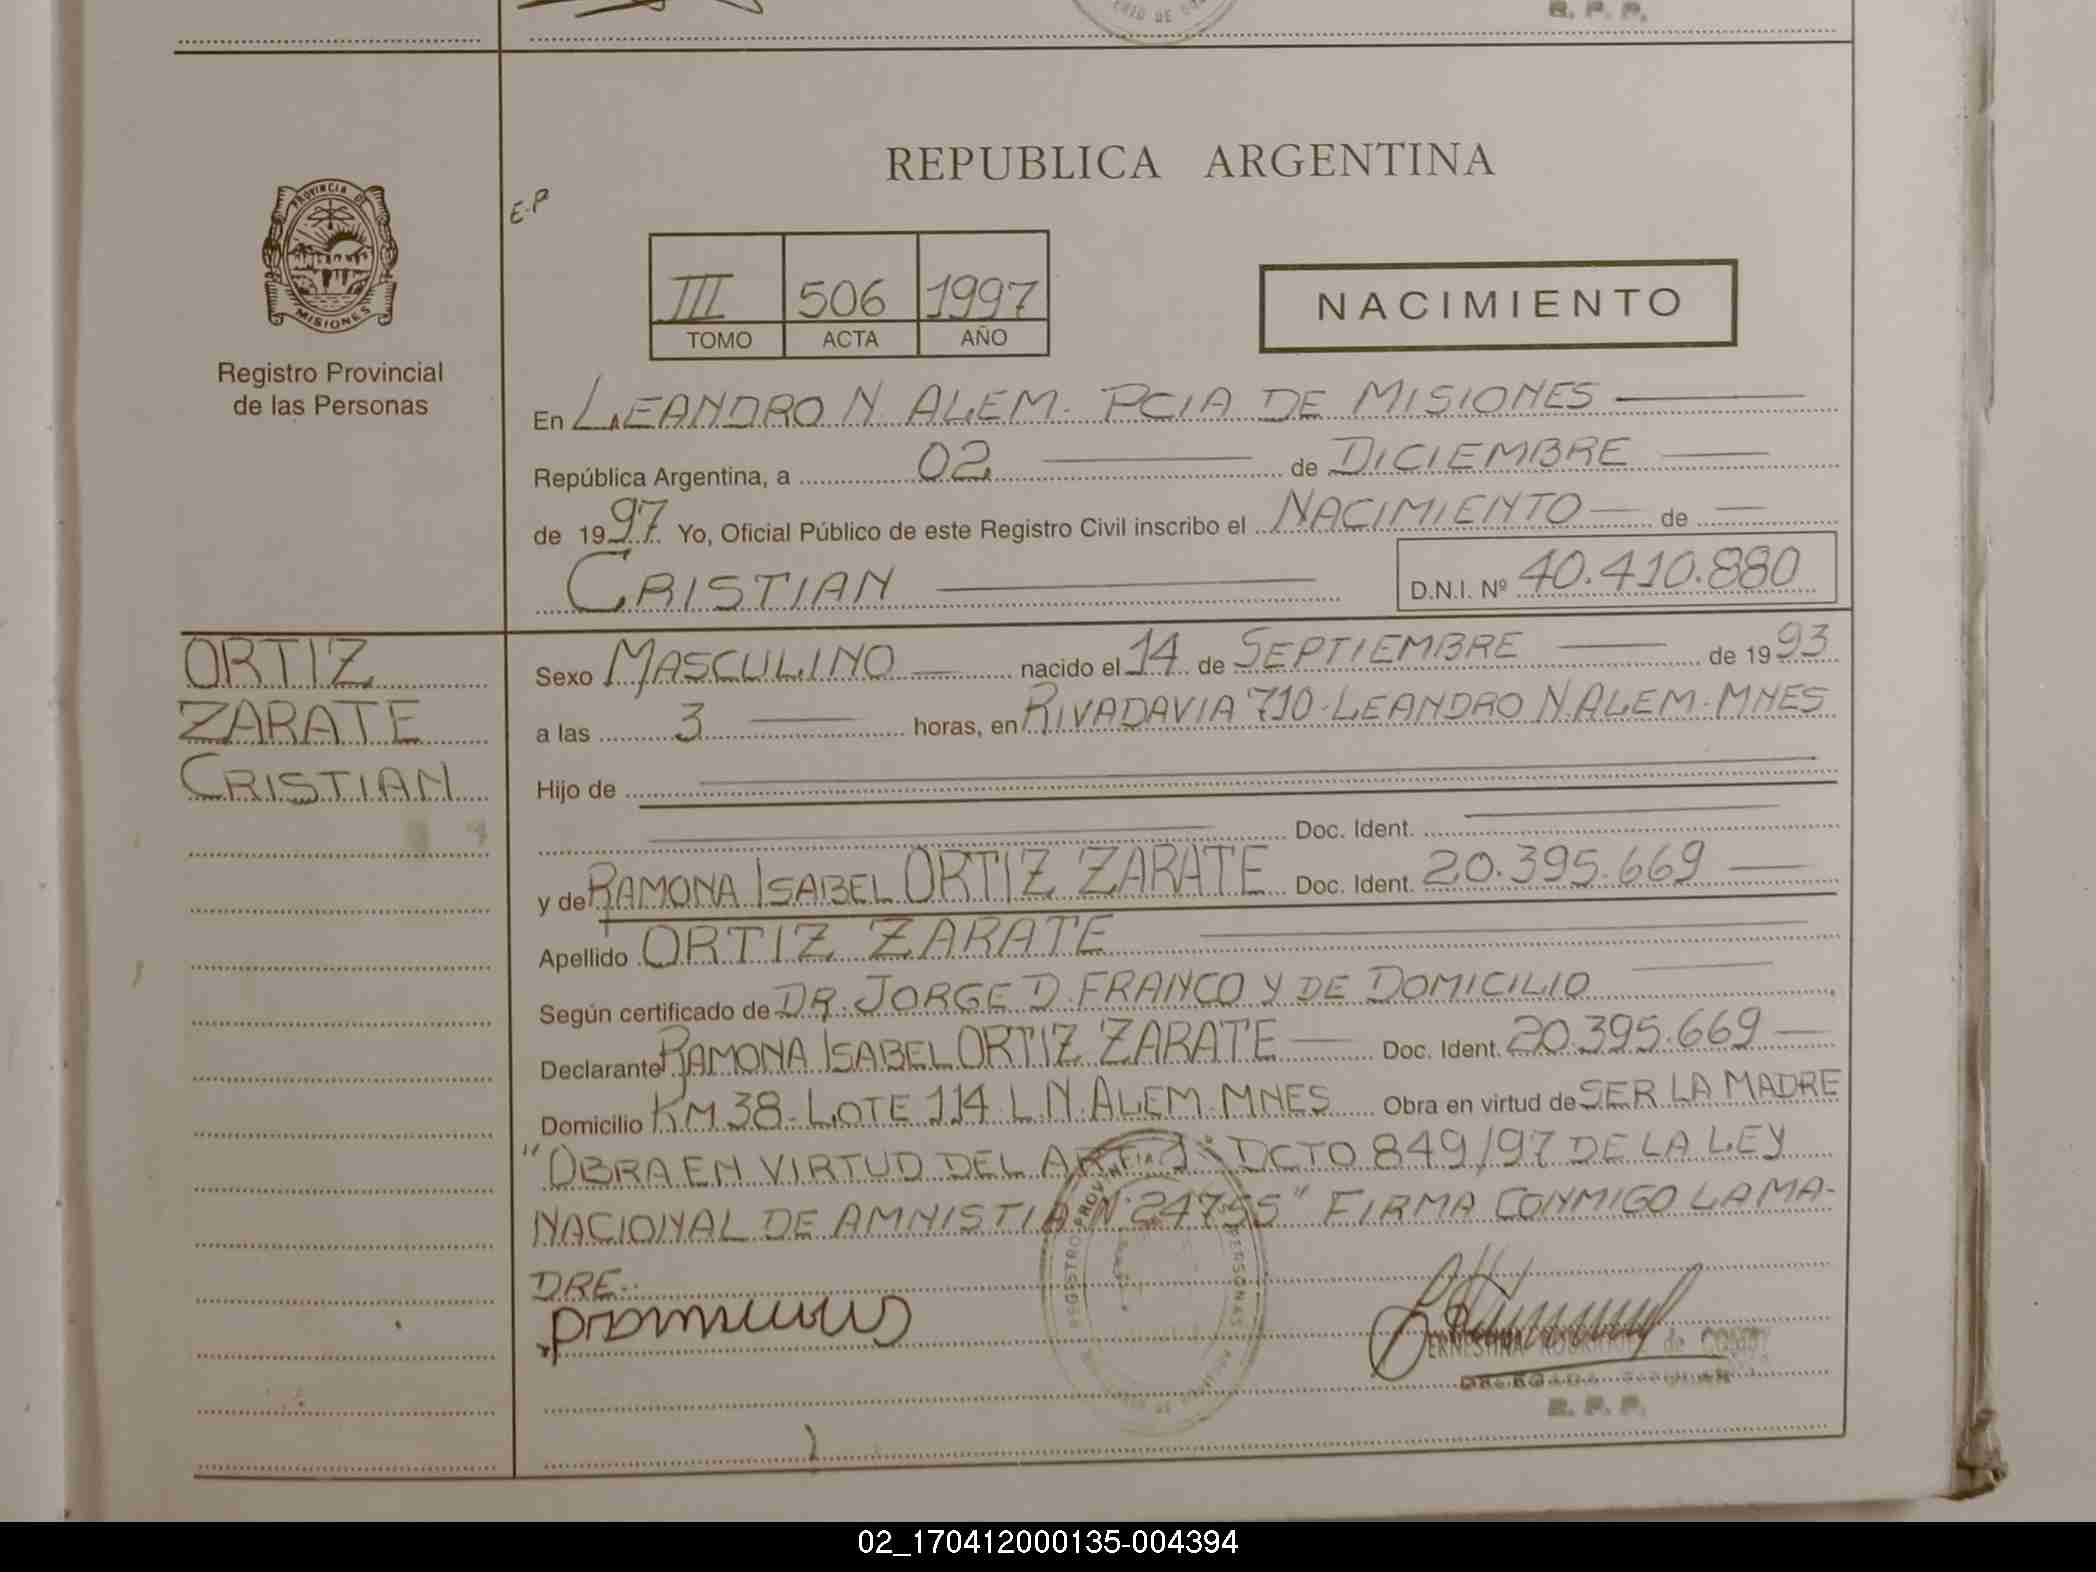 R. P. P.
REPUBLICA ARGENTINA
E.P
PROVINCIA DE
MISIONES
Registro Provincial
de las Personas
III 506 1997
TOMO ACTA AÑO
NACIMIENTO
En LEANDRO N. ALEM. PCIA DE MISIONES
República Argentina, a 02 de DICIEMBRE
de 1997 Yo, Oficial Público de este Registro Civil inscribo el NACIMIENTO de
CRISTIAN D.N.I. Nº 40.410.880
ORTIZ
ZARATE
CRISTIAN
Sexo MASCULINO nacido el 14 de SEPTIEMBRE de 1993
a las 3 horas, en RIVADAVIA 710-LEANDRO N.ALEM-MNES
Hijo de
Doc. Ident.
y de RAMONA ISABEL ORTIZ ZARATE Doc. Ident. 20.395.669
Apellido ORTIZ ZARATE
Según certificado de DR. JORGE D. FRANCO Y DE DOMICILIO
Declarante RAMONA ISABEL ORTIZ ZARATE Doc. Ident. 20.395.669
Domicilio KM 38-LOTE 114 L.N.ALEM-MNES Obra en virtud de SER LA MADRE
"OBRA EN VIRTUD DEL ART. DCTO 849/97 DE LA LEY
NACIONAL DE AMNISTIA Nº 24755" FIRMA CONMIGO LA MA-
DRE.
REGISTRO PROVINCIAL PERSONAS
ERNESTINA RODRIGUEZ de
R. P. P.
02_170412000135-004394